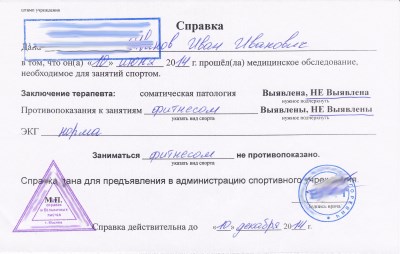 Справка
Дана Иванов Иван Иванович
в том, что он(а) «10» июня 2014г. прошёл(ла) медицинское обследование,
необходимое для занятий спортом.
Заключение терапевта: соматическая патология Выявлена, НЕ Выявлена
нужное подчеркнуть
Противопоказания к занятиям фитнесом Выявлены, НЕ Выявлены
указать вид спорта нужное подчеркнуть
ЭКГ норма
Заниматься фитнесом не противопоказано.
указать вид спорта
Справка дана для предъявления в администрацию спортивного учреждения.
М.П.
подпись врача
Справка действительна до «10» декабря 2014г.